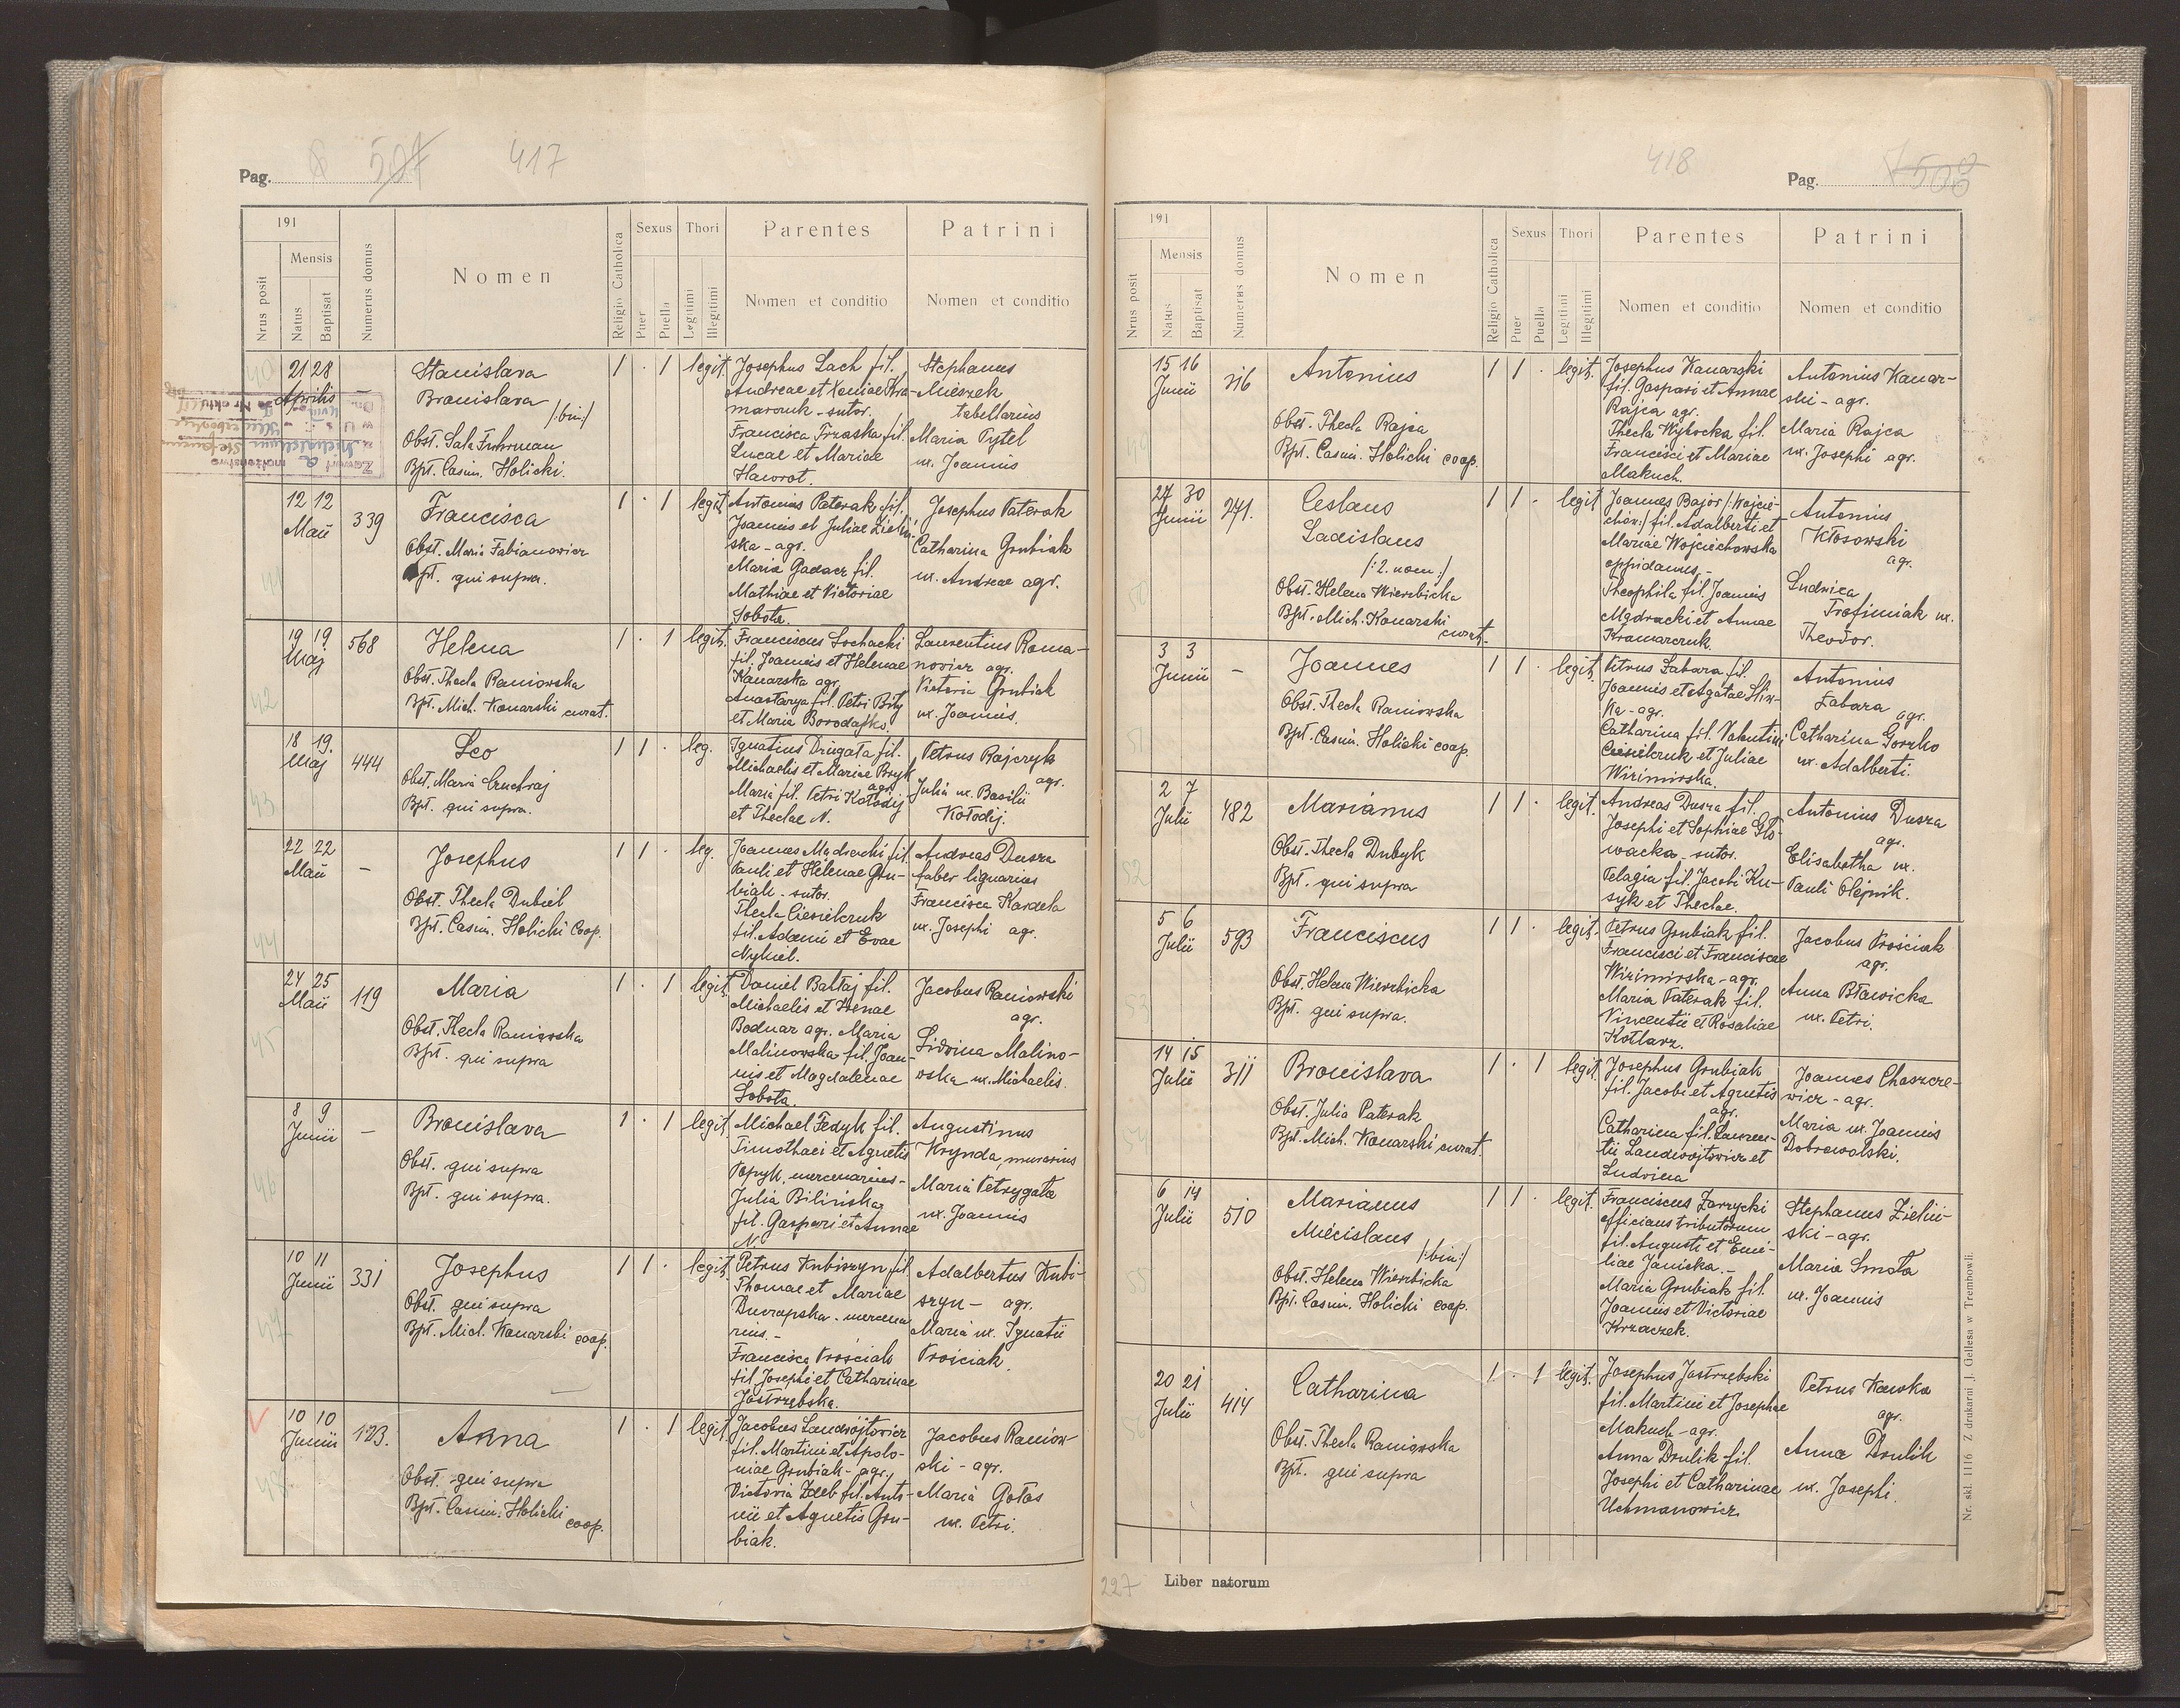 Pag. 507 417
191
Nrus posit
Mensis
Natus
Baptisat
Numerus domus
Nomen
Religio Catholica
Sexus
Puer
Puella
Thori
Legitimi
Illegitimi
Parentes
Nomen et conditio
Patrini
Nomen et conditio
40
21 28
Aprilis
—
Stanislava
Bronislava
/:bin:/
Obst. Sala Fuhrman
Bpt. Casim. Holicki.
1 . 1 legit.
Josephus Lach fil.
Andreae et Xeniae Kra-
marczuk - sutor.
Francisca Trzaska fil.
Lucae et Mariae
Hawrot.
Stephanus
Mieszek
tabellarius
Maria Pytel
ux. Joannis
41
12 12
Maii
339
Francisca
Obst. Maria Fabianowicz
Bpt. qui supra.
1 . 1 legit.
Antonius Paterak fil.
Joannis et Juliae Zieliń-
ska - agr.
Maria Gadacz fil.
Mathiae et Victoriae
Sobota.
Josephus Paterak
Catharina Grubiak
ux. Andreae agr.
42
19 19.
Maj
568
Helena
Obst. Thecla Raniowska
Bpt. Mich. Konarski curat.
1 . 1 legit.
Franciscus Sochacki
fil. Joannis et Helenae
Kanarska agr.
Anastazya fil. Petri Bity
et Maria Borodajko.
Laurentius Roma-
nowicz agr.
Victoria Grubiak
ux. Joannis.
43
18 19.
Maj
444
Leo
Obst. Maria Cruchraj
Bpt. qui supra.
1 1 . leg.
Ignatius Drugata fil.
Michaelis et Mariae Bryk
agr.
Maria fil. Petri Kołodij
et Theclae N.
Petrus Rajczyk
agr.
Julia ux. Basilii
Kołodij.
44
22 22
Maii
—
Josephus
Obst. Thecla Dubiel
Bpt. Casim. Holicki Coop.
1 1 . leg.
Joannes Madracki fil.
Pauli et Helenae Gru-
biak - sutor.
Thecla Ciesielczuk
fil. Adami et Evae
Nykiel.
Andreas Dusza
faber lignarius
Francisca Kardela
ux. Josephi agr.
45
24 25
Maii
119
Maria
Obst. Thecla Raniowska
Bpt. qui supra
1 . 1 legit.
Daniel Bałtaj fil.
Michaelis et Irenae
Bodnar agr. Maria
Malinowska fil. Joan-
nis et Magdalenae
Sobota.
Jacobus Raniowski
agr.
Lidvina Malino-
wska ux. Michaelis.
46
8 9
Junii
—
Bronislava
Obst. qui supra
Bpt. qui supra.
1 . 1 legit.
Michael Fedyk fil.
Timothaei et Agnetis
Popyk, mercenarius -
Julia Bilińska
fil. Gaspari et Annae
N.
Augustinus
Krynda, murarius
Maria Petrygata
ux. Joannis
47
10 11
Junii
331
Josephus
Obst. qui supra
Bpt. Mich. Konarski coop.
1 1 . legit.
Petrus Kubiszyn fil.
Thomae et Mariae
Duvrapska - mercena
rius. -
Francisca Prościak
fil. Josephi et Catharinae
Jastrzębska.
Adalbertus Kubi-
szyn - agr.
Maria ux. Ignatii
Prościak.
48
10 10
Junii
123.
Anna
Obst. qui supra
Bpt. Casim. Holicki
coop.
1 . 1 legit.
Jacobus Landwójtowicz
fil. Martini et Apolo-
niae Grubiak - agr.,
Victoria Zleb fil. Anto-
nii et Agnetis Gru-
biak.
Jacobus Raniow-
ski - agr.
Maria Gołas
ux. Petri.
418 Pag. 508
191
Nrus posit
Mensis
Natus
Baptisat
Numerus domus
Nomen
Religio Catholica
Sexus
Puer
Puella
Thori
Legitimi
Illegitimi
Parentes
Nomen et conditio
Patrini
Nomen et conditio
49
15 16
Junii
316
Antonius
Obst. Thecla Rajca
Bpt. Casim. Holicki coop.
1 1 . legit.
Josephus Kanarski
fil. Gaspari et Annae
Rajca agr.
Thecla Wysocka fil.
Francisci et Mariae
Makuch.
Antonius Kanar-
ski - agr.
Maria Rajca
ux. Josephi agr.
50
27 30
Junii
271.
Ceslaus
Ladislaus
/:2. nom:/
Obst. Helena Wierzbicka
Bpt. Mich. Konarski
curat.
1 1 . legit
Joannes Bajor /:Wojcie-
chów:/ fil. Adalberti et
Mariae Wojciechowska
oppidanus, -
Theophila fil. Joannis
Mądracki et Annae
Kramarczuk.
Antonius
Kłosowski
agr.
Ludvica
Trofimiak ux.
Theodor.
51
3 3
Junii
—
Joannes
Obst. Thecla Raniowska
Bpt. Casim. Holicki coop.
1 1 . legit.
Petrus Łabara fil.
Joannis et Agatae Śliw-
ka - agr.
Catharina fil. Valentini
Ciesielczuk et Juliae
Wizimirska.
Antonius
Łabara
agr.
Catharina Gorzko
ux. Adalberti.
52
2 7
Julii
482
Marianus
Obst. Thecla Dubyk
Bpt. qui supra
1 1 . legit.
Andreas Dusza fil.
Josephi et Sophiae Gło-
wacka - sutor.
Pelagia fil. Jacobi Ku-
syk et Theclae.
Antonius Dusza
agr.
Elisabetha ux.
Pauli Olejnik.
53
5 6
Julii
593
Franciscus
Obst. Helena Wierzbicka
Bpt. qui supra.
1 1 . legit.
Petrus Grubiak fil.
Francisci et Franciscae
Wizimirska - agr.
Maria Paterak fil.
Vincentii et Rosaliae
Kotlarz.
Jacobus Prościak
agr.
Anna Bławicka
ux. Petri.
54
14 15
Julii
311
Bronislava
Obst. Julia Paterak
Bpt. Mich. Konarski curat.
1 . 1 legit.
Josephus Grubiak
fil. Jacobi et Agnetis
agr.
Catharina fil. Lauren-
tii Landwójtowicz et
Ludvina
Joannes Chaszcze-
wicz - agr.
Maria ux. Joannis
Dobrowolski.
55
6 14
Julii
510
Marianus
Miecislaus
/:bin:/
Obst. Helena Wierzbicka
Bpt. Casim. Holicki coop.
1 1 . legit.
Franciscus Zarzycki
officians tributorum
fil. Augusti et Emi-
liae Janicka. -
Maria Grubiak fil.
Joannis et Victoriae
Krzaczek.
Stephanus Zieliń-
ski - agr.
Maria Smota
ux. Joannis
56
20 21
Julii
414
Catharina
Obst. Thecla Raniowska
Bpt. qui supra
1 . 1 legit.
Josephus Jastrzębski
fil. Martini et Josephae
Makuch - agr.
Anna Drulik fil.
Josephi et Catharinae
Uchmanowicz
Petrus Kawka
agr.
Anna Drulik
ux. Josephi.
227 Liber natorum
Nr. skl. 1116 Z drukarni J. Gellesa w Trembowli.